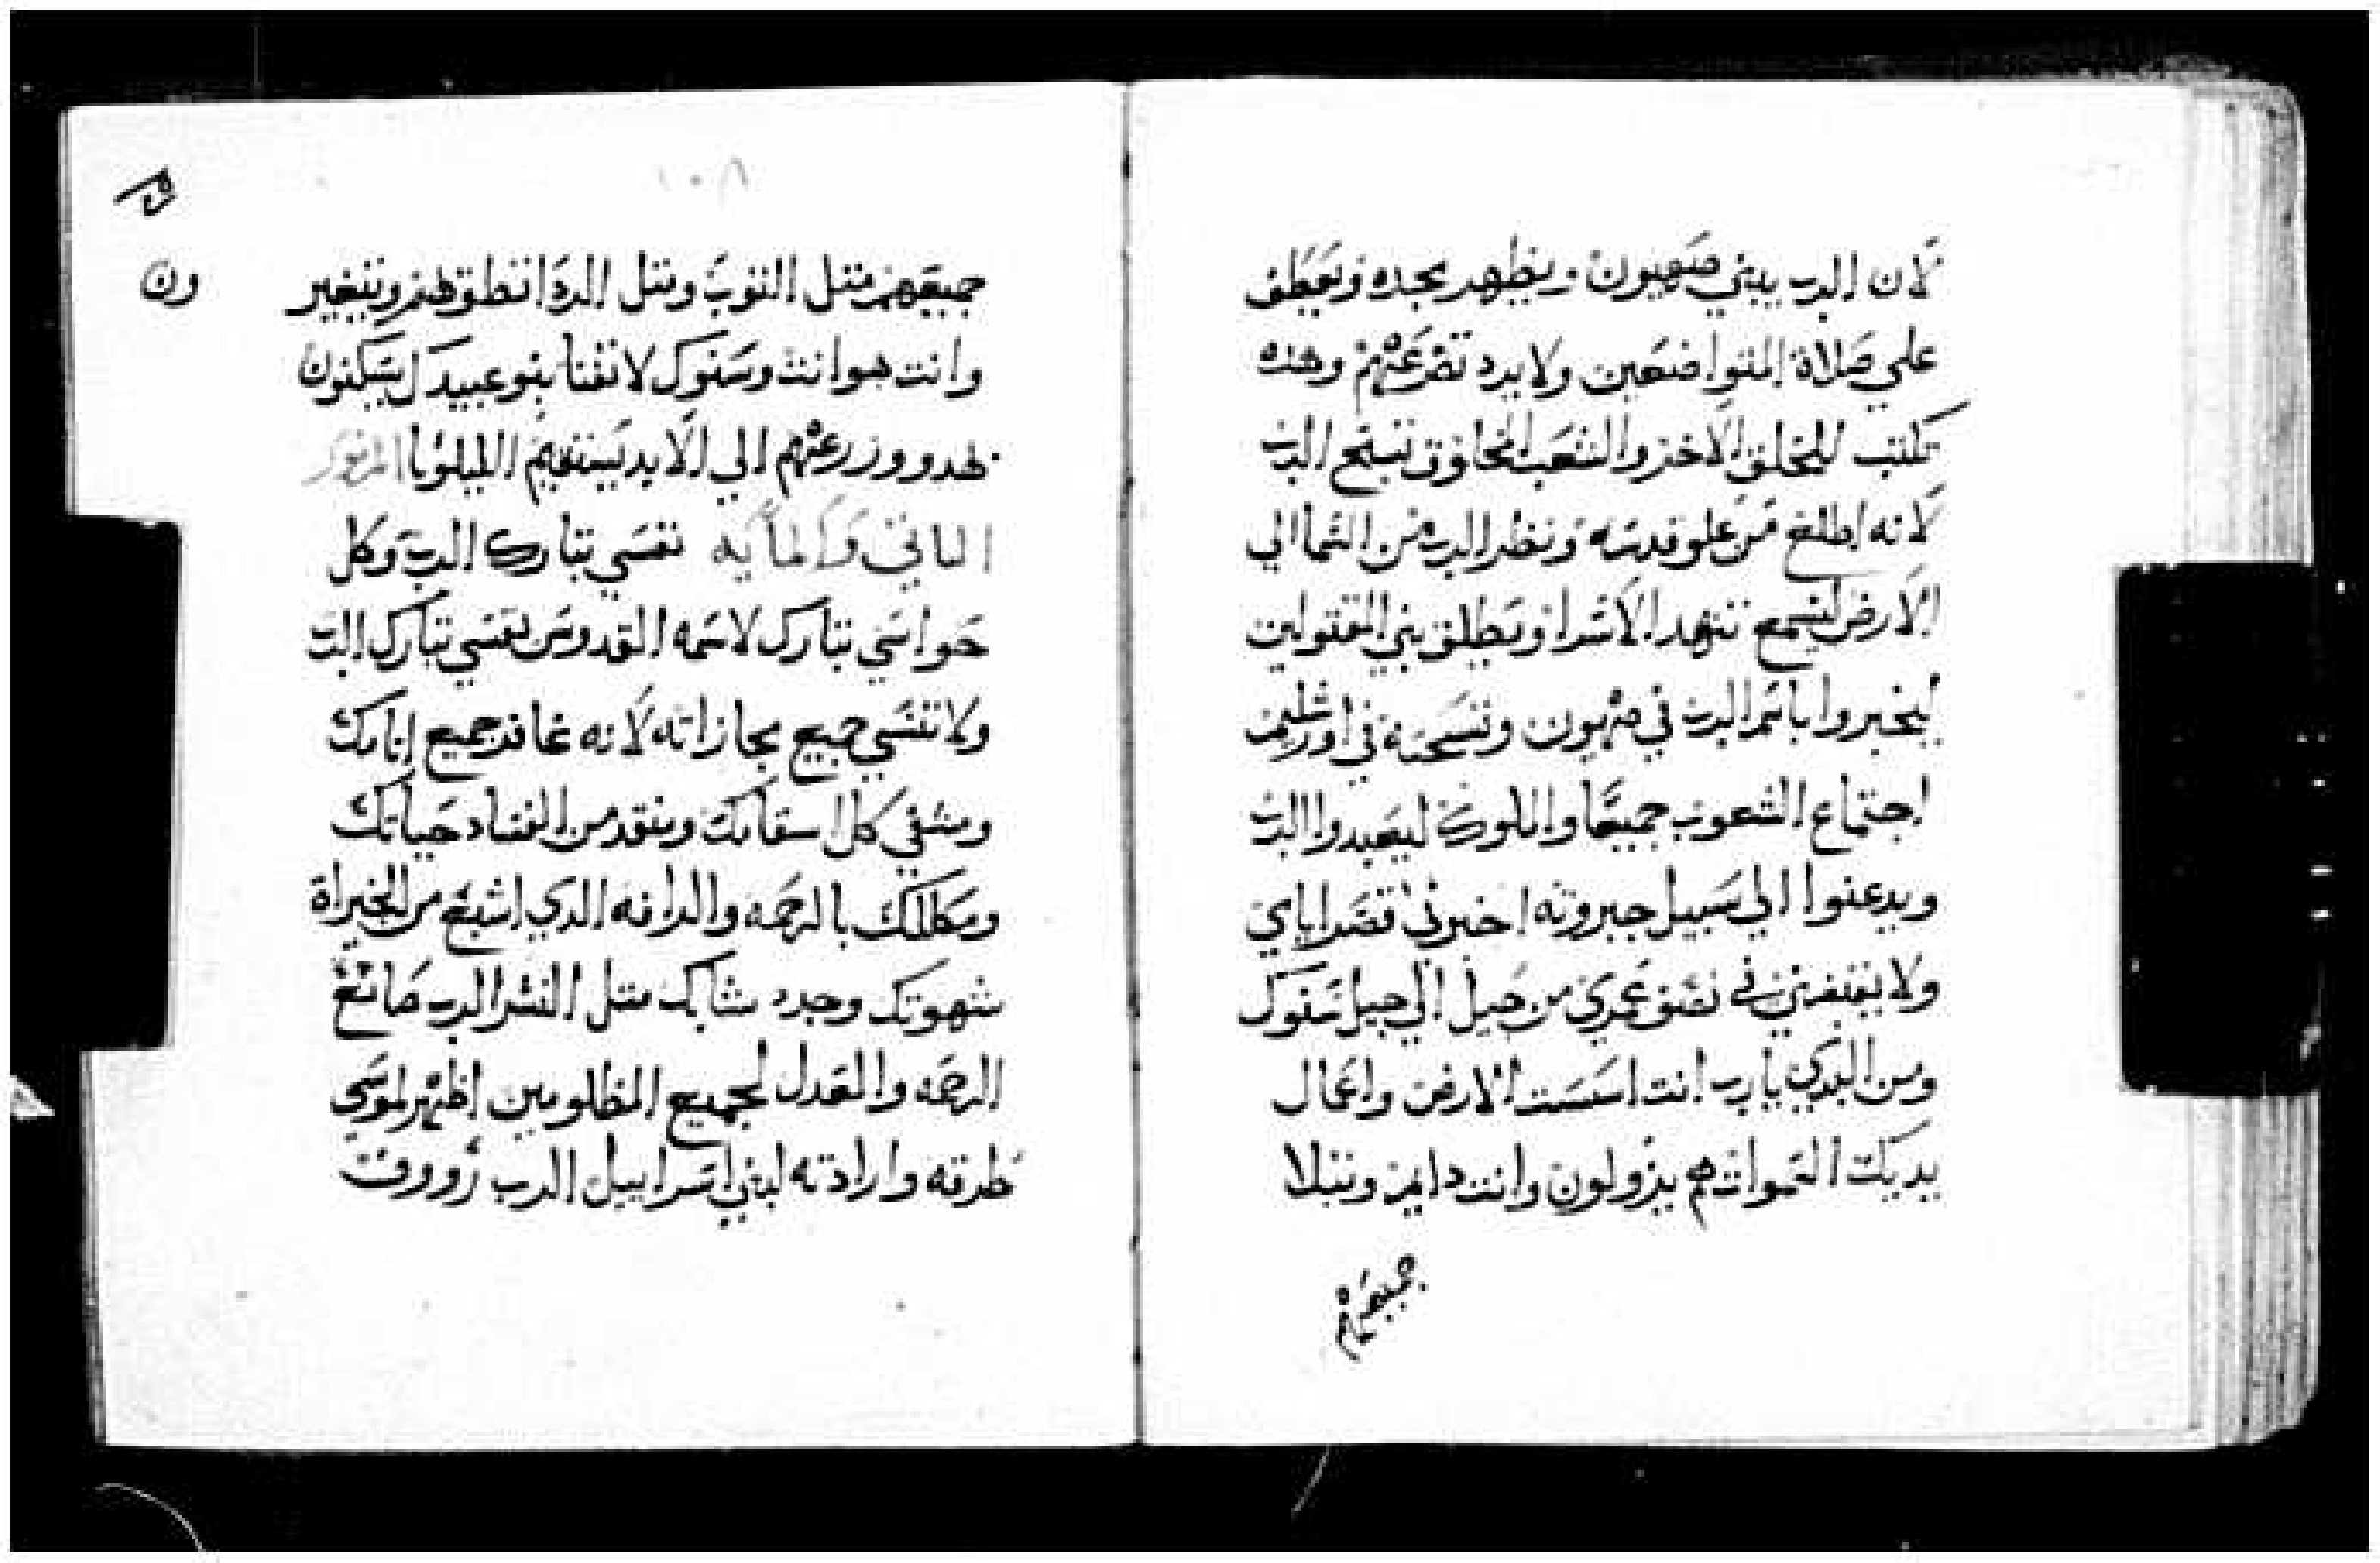 لان الرب يبني صهيون ويظهر مجده ويعطف
علي صلاة المتواضعين ولا يرد تضرعهم وهذه
تكتب للخلف الاخر والشعب المخلوق تسبح الرب
لانه اطلع من علو قدسه ونظر الرب من السما الي
الارض ليسمع تنهد الاسرا ويطلق بني المقتولين
ليخبروا باسم الرب في صهيون وتسبحته في اورشليم
اجتماع الشعوب جميعا والملوك ليعبدوا الرب
ويدعنوا الي سبيل جبروته اخبرني قصر ايامي
ولا ينقضني في نصف عمري من جيل الي جيل سنوك
ومن البدي يارب انت اسست الارض واعمال
يديك السموات هم يزولون وانت دايم وتبلا
جميعهم
١٠٨
ون
جميعهم مثل الثوب ومثل الردا تطويهم ويتغير
وانت هو انت وسنوك لا تفنا بنو عبيدك يسكنون
بهدو وزرعهم الي الابد يستقيم الليلويا المزمور
الثاني والمايه نفسي تبارك الرب وكل
حواسي تبارك لاسمه القدوس نفسي تبارك الرب
ولا تنسي جميع مجازاته لانه غافر جميع اثامك
ومشفي كل اسقامك ومنقد من الفساد حياتك
ومكللك بالرحمه والرافه الدي اشبع من الخيراة
شهوتك وجدد شبابك متل النسر الرب صانع
الرحمه والعدل لجميع المظلومين اظهر لموسي
طرقه وارادته لبني اسراييل الرب رووف